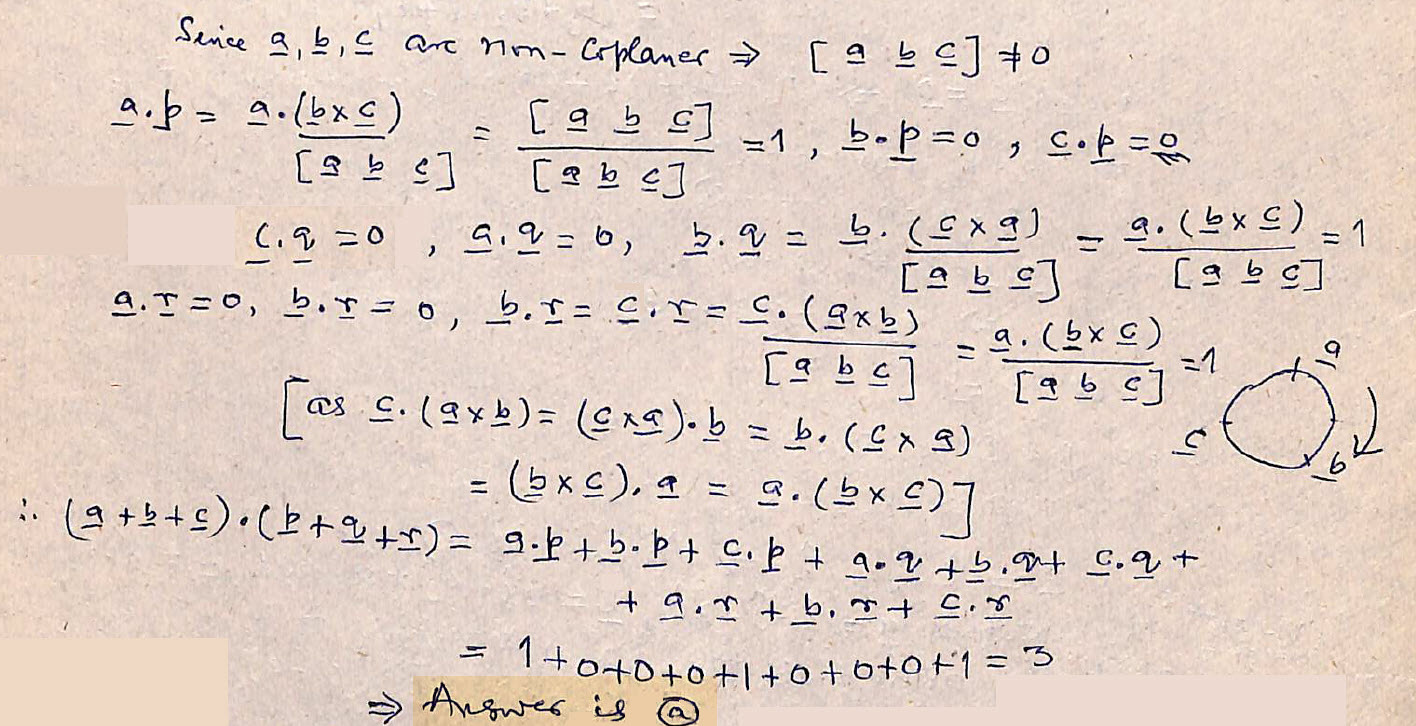 Since a, b, c are non-Coplaner ⇒ [a b c] ≠ 0
a.p = a.(b×c)/[a b c] = [a b c]/[a b c] = 1, b.p = 0, c.p = 0
c.q = 0, a.q = 0, b.q = b.(c×a)/[a b c] = a.(b×c)/[a b c] = 1
a.r = 0, b.r = 0, b.r = c.r = c.(a×b)/[a b c] = a.(b×c)/[a b c] = 1
[as c.(a×b) = (c×a).b = b.(c×a)
= (b×c).a = a.(b×c)]
a
c
b
∴ (a+b+c).(p+q+r) = a.p + b.p + c.p + a.q + b.q + c.q +
+ a.r + b.r + c.r
= 1+0+0+0+1+0+0+0+1 = 3
⇒ Answer is ⓐ